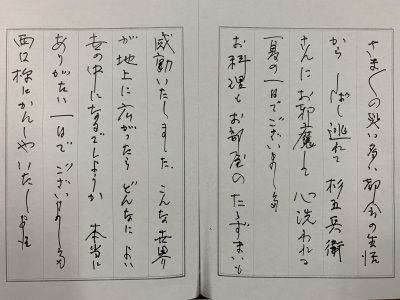 さまざまの災い多い都会の生活
から しばし逃れて 杉五兵衛
さんに お邪魔して 心洗われる
一夏の一日でございました
お料理もお部屋のたたずまいも
感動いたしました。こんな世界
が地上に広がったら どんなに よい
世の中になるでしょうか 本当に
ありがたい一日でございました
西口様にかんしゃいたします